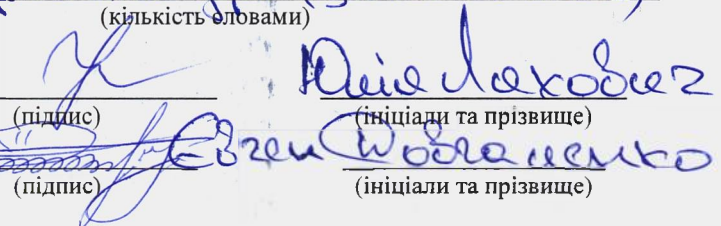 (кількість словами)
Юлія Ляхович
(підпис) (ініціали та прізвище)
Євген Довганенко
(підпис) (ініціали та прізвище)